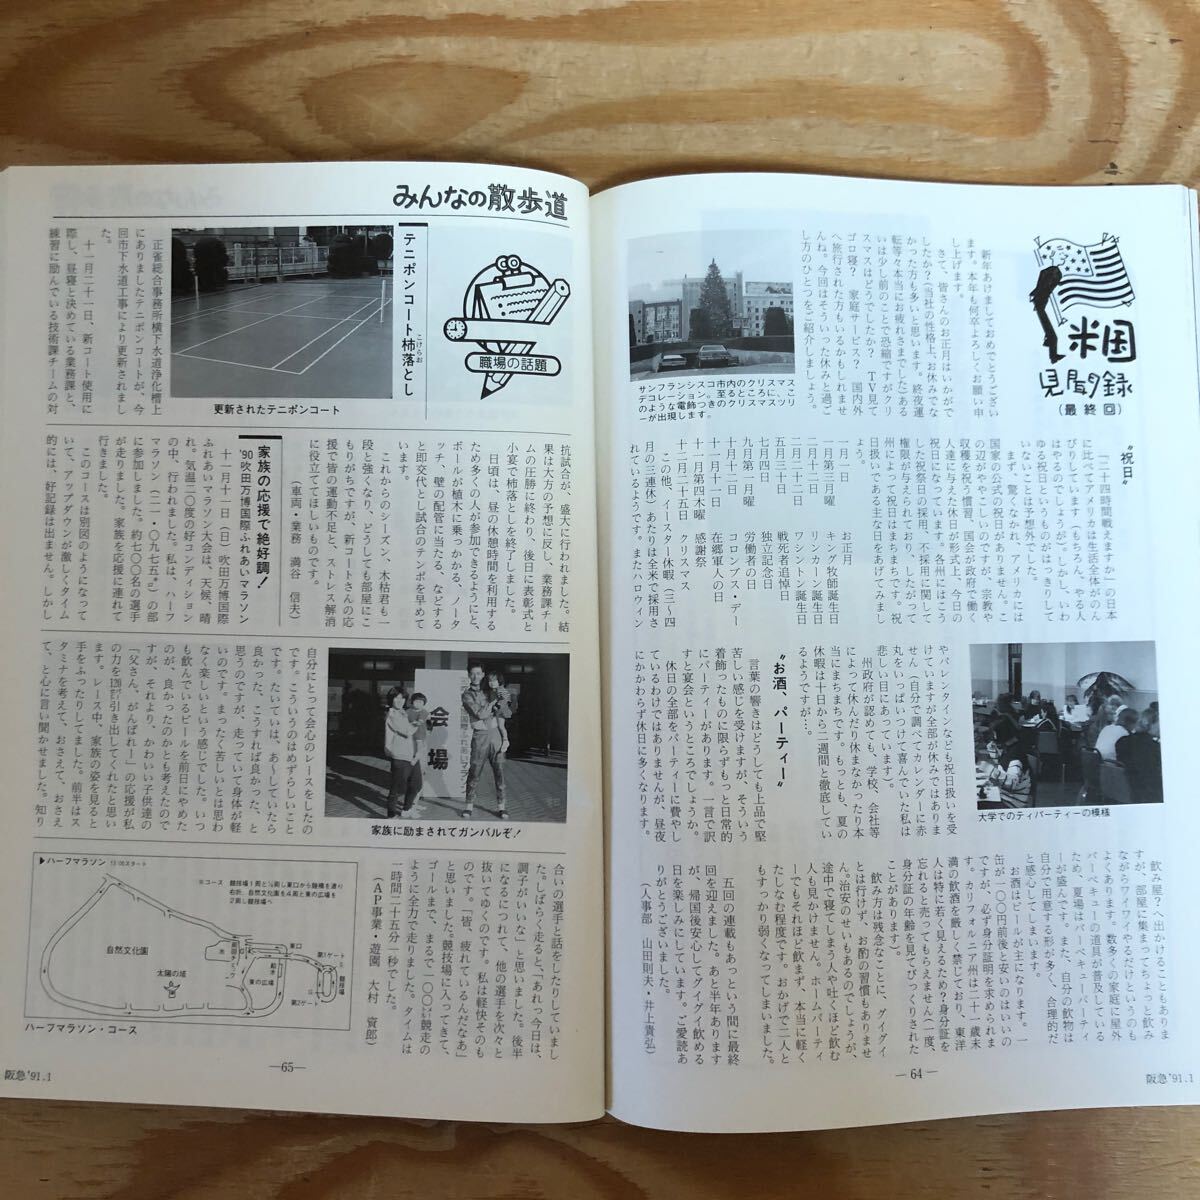 米国
見聞録
(最終回)
新年あけましておめでとうござい
ます。本年も何卒よろしくお願い申
し上げます。
さて、皆さんのお正月はいかがで
したか?(当社の性格上、お休みでな
かった方も多いと思います。終夜運
転等々本当にお疲れさまでした)ある
いは少し前のことで恐縮ですがクリ
スマスはどうでしたか? TV見て
ゴロ寝? 家庭サービス? 国内外
へ旅行された方もいるかもしれませ
んね。今回はそういった休みと過ご
し方のひとつをご紹介しましょう。
サンフランシスコ市内のクリスマス
“祝日”
「二十四時間戦えますか」の日本
に比べてアメリカは生活全体がのん
びりしています(もちろん、やる人
はやるのでしょうが)。しかし、いわ
ゆる祝日というものがはっきりして
ないことは予想外でした。
まず、驚くなかれ、アメリカには
国家の公式の祝日がありません。こ
の辺がややこしいのですが、宗教や
収穫を祝う慣習、国会が政府で働く
人達に与えた休日が形式上、今日の
祝日になっています。各州にはこう
した祝祭日の採用、不採用に関して
権限が与えられており、したがって
州によって祝日はまちまちです。祝
日扱いである主な日をあげてみまし
ょう。
一月一日 お正月
一月第三月曜 キング牧師誕生日
二月十二日 リンカーン誕生日
二月二十二日 ワシントン誕生日
五月三十日 戦死者追悼日
七月四日 独立記念日
九月第一月曜 労働者の日
十月十二日 コロンブス・デー
十一月十一日 在郷軍人の日
十一月第四木曜 感謝祭
十二月二十五日 クリスマス
この他、イースター休暇(三〜四
月の三連休)あたりは全米で採用さ
れているようです。またハロウィン
やバレンタインなども祝日扱いを受
けていますが全部が休みではありま
せん(自分で調べてカレンダーに赤
丸をいっぱいつけて喜んでいた私は
悲しい目にあっています)。
州政府が認めても、学校、会社等
によって休んだり休まなかったり本
当にまちまちです。もっとも、夏の
休暇は十日から二週間と徹底してい
るようですが…。
“お酒、パーティー”
言葉の響きはどうしても上品で堅
苦しい感じを受けますが、そういう
着飾ったものに限らずもっと日常的
にパーティーがあります。一言で訳
すと宴会というところでしょうか。
休日の全部をパーティーに費やし
ているわけではありませんが、昼夜
にかかわらず休日に多くなります。
大学でのティパーティーの模様
飲み屋?へ出かけることもありま
すが、部屋に集まってちょっと飲み
ながらワイワイやるだけというのも
よくあります。数多くの家庭に屋外
バーベキューの道具が普及している
ため、夏場はバーベキューパーティ
ーが盛んです。また、自分の飲物は
自分で用意する形が多く、合理的だ
と感心してしまいます。
お酒はビールが主になります。一
缶が一〇〇円前後と安いのはいいの
ですが、必ず身分証明を求められま
す。カリフォルニア州は二十一歳未
満の飲酒を厳しく禁じており、東洋
人は特に若く見えるため?身分証を
忘れると売ってもらえません(一度、
身分証の年齢を見てびっくりされた
ことがあります)。
飲み方は残念なことに、グイグイ
とは行けず、お酌の習慣もありませ
ん。治安のせいもあるのでしょうが、
途中で寝てしまう人や吐くほど飲む
人も見かけません。ホームパーティ
ーでもそれほど飲まず、本当に軽く
たしなむ程度です。おかげで二人と
もすっかり弱くなってしまいました。
五回の連載もあっという間に最終
回を迎えました。あと半年あります
が、帰国後安心してグイグイ飲める
日を楽しみにしています。ご愛読あ
りがとうございました。
(人事部 山田則夫・井上貴弘)
—64—
阪急'91.1
みんなの散歩道
職場の話題
テニポンコート柿落とし
こけらお
更新されたテニポンコート
正雀総合事務所横下水道浄化槽上
にありましたテニポンコートが、今
回市下水道工事により更新されまし
た。
十一月二十一日、新コート使用に
際し、昼寝と決めている業務課と、
練習に励んでいる技術課チームの対
抗試合が、盛大に行われました。結
果は大方の予想に反し、業務課チー
ムの圧勝に終わり、後日に表彰式と
小宴で柿落としを終了しました。
日頃は、昼の休憩時間を利用する
ため多くの人が参加できるようにと、
ボールが植木に乗っかかる、ノータ
ッチ、壁の配管に当たる、などする
と即交代とし試合のテンポを早めて
います。
これからのシーズン、木枯君も一
段と強くなり、どうしても部屋にこ
もりがちですが、新コートさんの応
援で皆の運動不足と、ストレス解消
に役立ててほしいものです。
(車両・業務 満谷 信夫)
家族の応援で絶好調!
'90吹田万博国際ふれあいマラソン
十一月十一日(日)吹田万博国際
ふれあいマラソン大会は、天候、晴
れ。気温二〇度の好コンディション
の中、行われました。私は、ハーフ
マラソン(二一・〇九七五㌔)の部
に参加しました。約七〇〇名の選手
が走りました。家族を応援に連れて
行きました。
このコースは別図のようになって
いて、アップダウンが激しくタイム
的には、好記録は出ません。しかし
自分にとって会心のレースをしたの
です。こういうのはめずらしいこと
です。たいていは、あ〜していたら
良かった、こうすれば良かった、と
思うのですが、走っていて身体が軽
いのです。まったく苦しいとは思わ
なく楽しいという感じでした。いつ
も飲んでいるビールを前日にやめた
のが、良かったのかとも考えたので
すが、それより、かわいい子供達の
「父さん、がんばれ!」の応援が私
の力を120㌫引き出してくれたと思い
ます。レース中、家族の姿を見ると
手をふったりしてました。前半はス
タミナを考えて、おさえて、おさえ
て、と心に言い聞かせました。知り
会場
家族に励まされてガンバルぞ!
合いの選手と話をしたりしていまし
た。しばらく走ると、「あれっ今日は、
調子がいいな」と思いました。後半
になるにつれて、他の選手を次々と
抜いてゆくのです。私は軽快そのも
のです。「皆、疲れているんだなあ」
と思いました。競技場に入ってきて、
ゴールまで、まるで一〇〇㍍競走の
ように全力で走りました。タイムは
一時間二十五分一秒でした。
(AP事業・遊園 大村 資郎)
▶ハーフマラソン 13:00スタート
※コース
自然文化園
太陽の塔
東口
東の広場
第1ゲート
第2ゲート
競技場
ハーフマラソン・コース
—65—
阪急'91.1